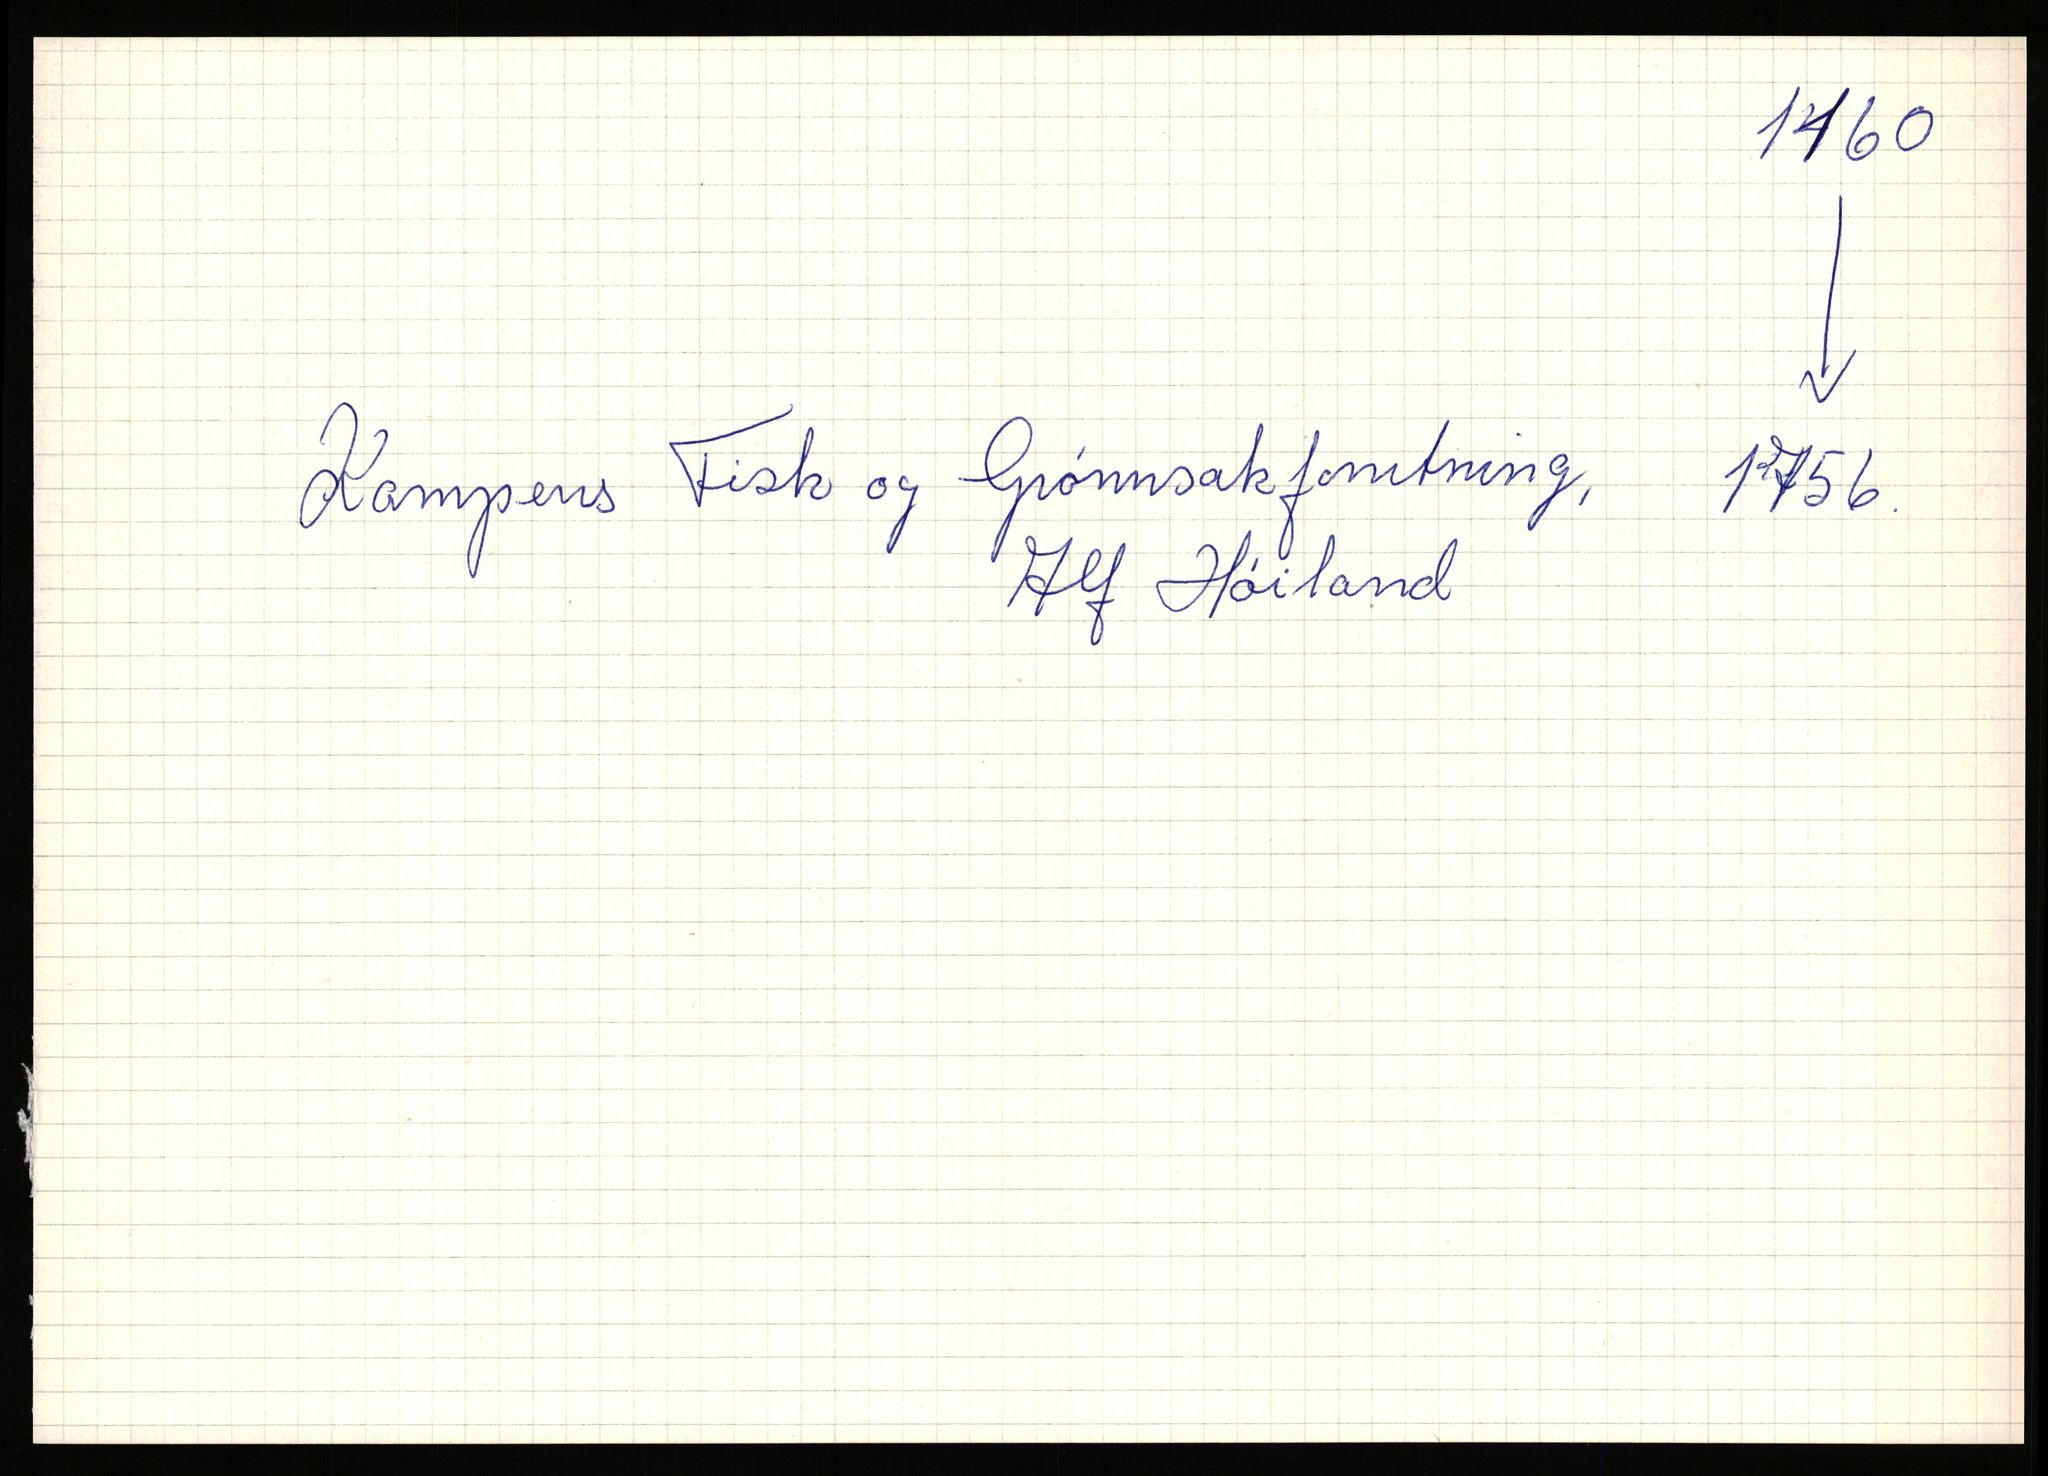 1460
Kampens Fisk og Grønnsakforretning, 1756.
Alf Høiland